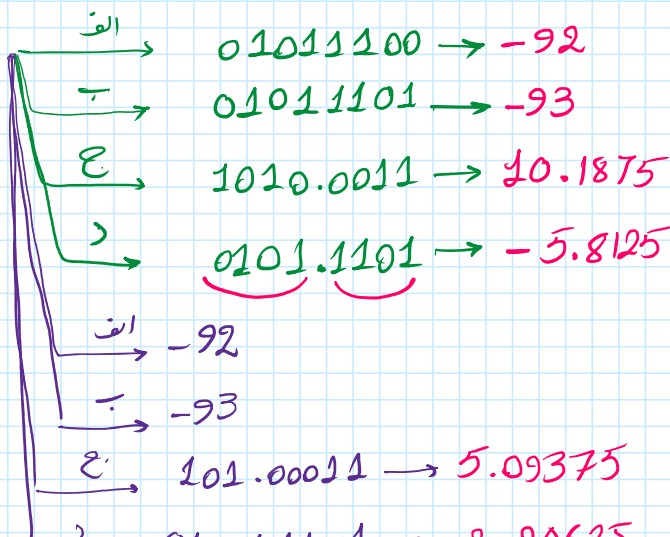 الف 01011100 → -92
ب 01011101 → -93
ج 1010.0011 → 10.1875
د 0101.1101 → -5.8125
الف -92
ب -93
ج 101.00011 → 5.09375